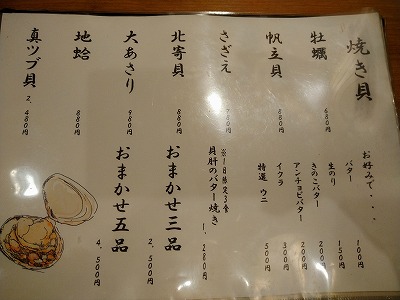 焼き貝
牡蠣
680円
帆立貝
880円
さざえ
780円
北寄貝
880円
大あさり
980円
地蛤
880円
真ツブ貝
2,480円
お好みで・・・・
バター
100円
生のり
150円
きのこバター
200円
アンチョビバター
200円
イクラ
300円
特選 ウニ
500円
※1日限定3食
貝肝のバター焼き
1,280円
おまかせ三品
2,500円
おまかせ五品
4,500円